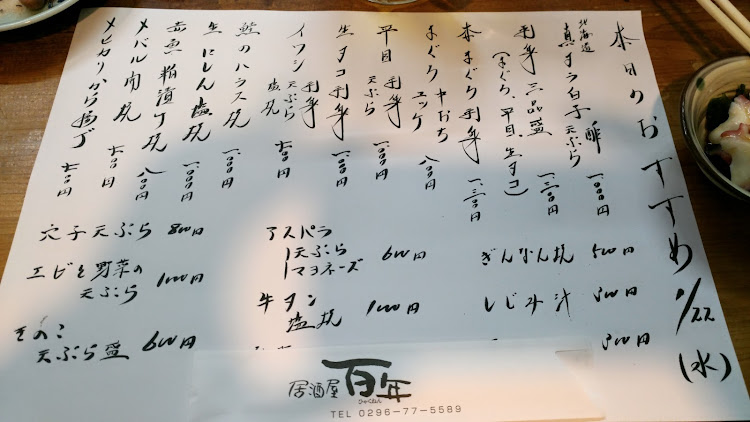 本日のおすすめ 1/22(水)
北海道
真ダラ白子 酢 天ぷら 一、〇〇〇円
刺身三品盛 一、二〇〇円
(まぐろ、平目、生タコ)
本まぐろ刺身 一、三〇〇円
まぐろ 中おち ユッケ 八〇〇円
平目 刺身 天ぷら 一、〇〇〇円
生タコ刺身 一、〇〇〇円
イワシ 刺身 天ぷら 塩焼 七〇〇円
鮭のハラス焼 一、〇〇〇円
生にしん塩焼 一、〇〇〇円
赤魚粕漬け焼 八〇〇円
メバル肉焼 七〇〇円
メヒカリから揚げ 七〇〇円
ぎんなん焼 500円
しじみ汁 300円
300円
アスパラ
天ぷら
マヨネーズ 600円
牛タン
塩焼 1000円
穴子天ぷら 800円
エビと野菜の
天ぷら 1000円
きのこ
天ぷら盛 600円
居酒屋 百年
ひゃくねん
TEL 0296-77-5589